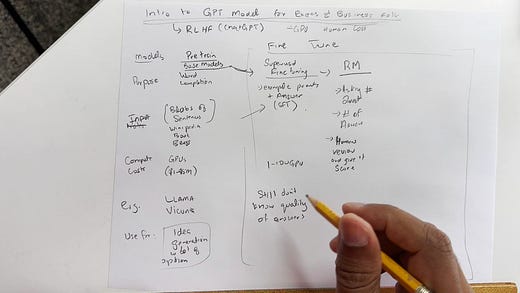 Intro to GPT Model for Execs & Business Folks
↳ RLHF (ChatGPT) - GPU Human Cost
Models
Pretrain
Base models
Purpose
Word
Completion
Input
(Blobs of
Sentences
Wikipedia
Book
Compute
Costs
GPUs
e.g.
LLAMA
Vicuna
Use for:
Idea
generation
Fine Tune
Supervised
Fine tuning
→ example prompts
+ Answer
(SFT)
1-100 GPU
Still don't
know quality
of answers
RM
→ # of
→ Human
review
and give it
Score